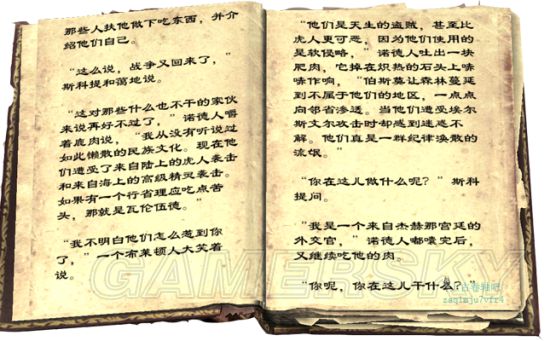 那些人扶他做下吃东西，并介
绍他们自己。
“这么说，战争又回来了，”
斯科提和蔼地说。
“这对那些什么也不干的家伙
来说再好不过了，” 诺德人嚼
着鹿肉说，“我从没有听说过
如此懒散的民族文化。现在他
们遭受了来自陆上的虎人袭击
和来自海上的高级精灵袭击。
如果有一个行省理应吃点苦
头，那就是瓦伦伍德。”
“我不明白他们怎么惹到你
了，” 一个布莱顿人大笑着
说。
“他们是天生的盗贼，甚至比
虎人更可恶，因为他们使用的
是软侵略，” 诺德人吐出一块
肥肉，它掉在炽热的石头上哧
哧作响，“伯斯莫让森林蔓延
到不属于他们的地区，一点点
向邻省渗透。当他们遭受埃尔
斯文尔攻击时却感到迷惑不
解。他们真是一群纪律涣散的
流氓。”
“你在这儿做什么呢？” 斯科
提问。
“我是一个来自杰赫那宫廷的
外交官，” 诺德人嘟囔完后，
又继续吃他的肉。
“你呢，你在这儿干什么？”
GAMERSKY
zaqxmju7vfr4